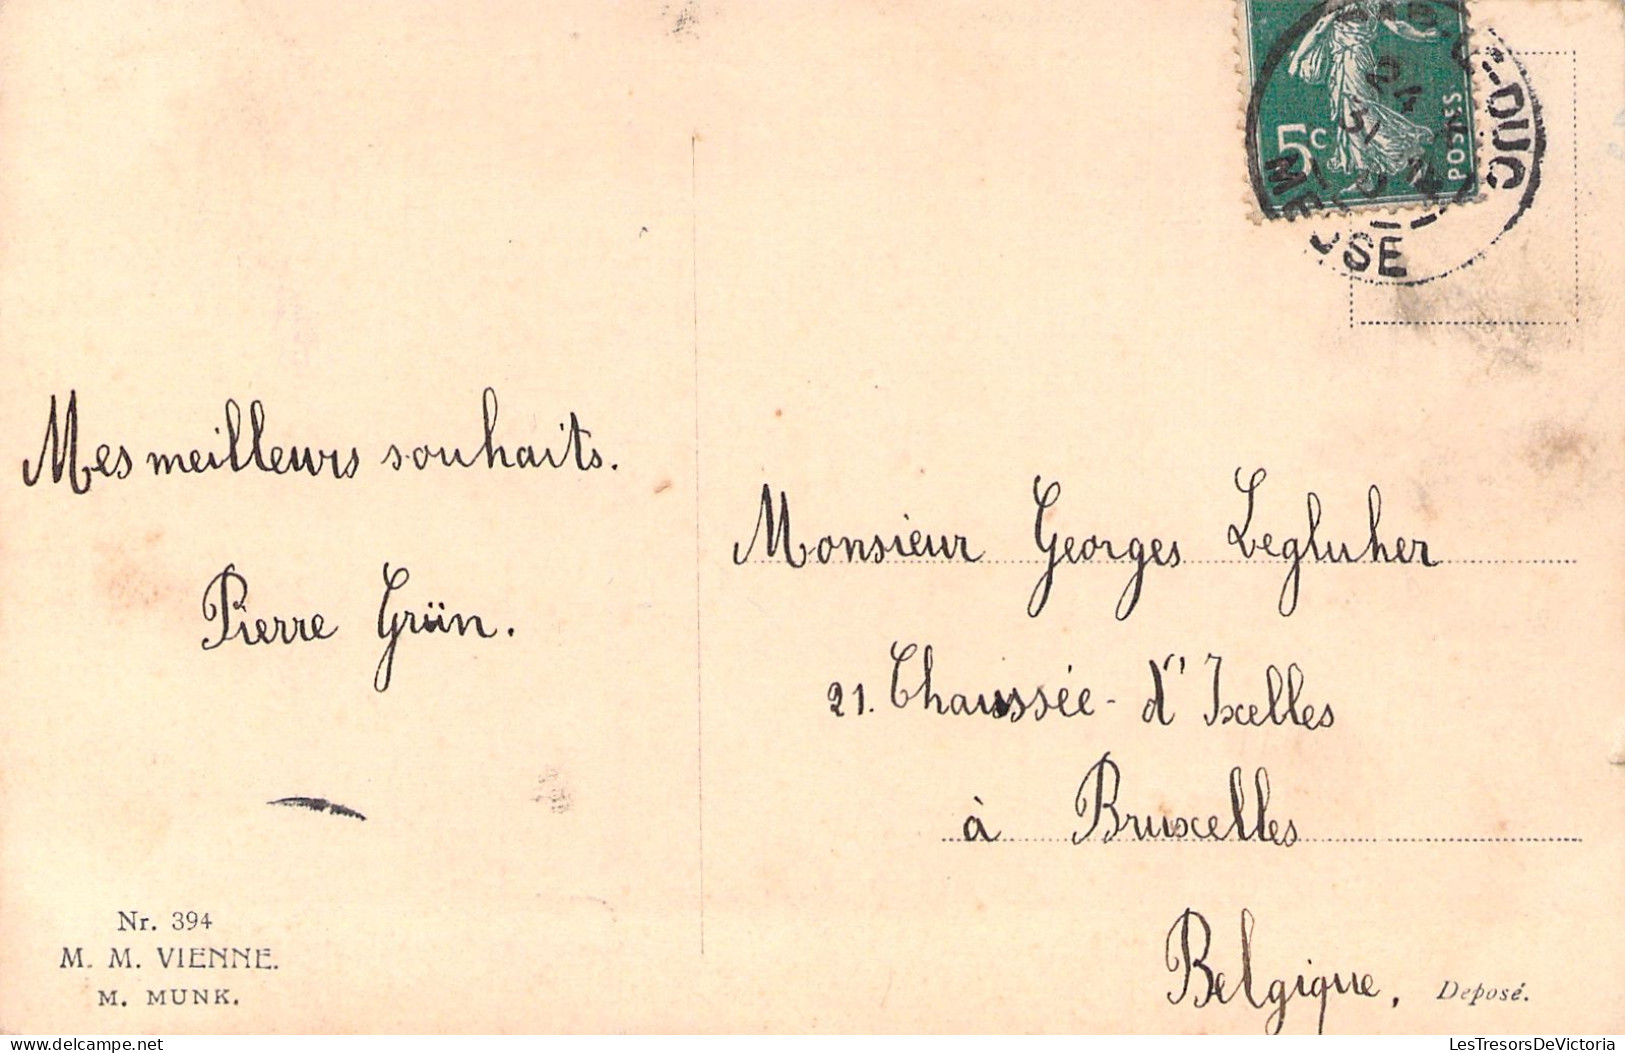 5c
POSTES
-DUC
MEUSE
Mes meilleurs souhaits.
Pierre Grün.
Monsieur Georges Legluher
21. Chaussée - d'Ixelles
à Bruxelles
Belgique.
Nr. 394
M. M. VIENNE.
M. MUNK.
Deposé.
LesTresorsDeVictoria